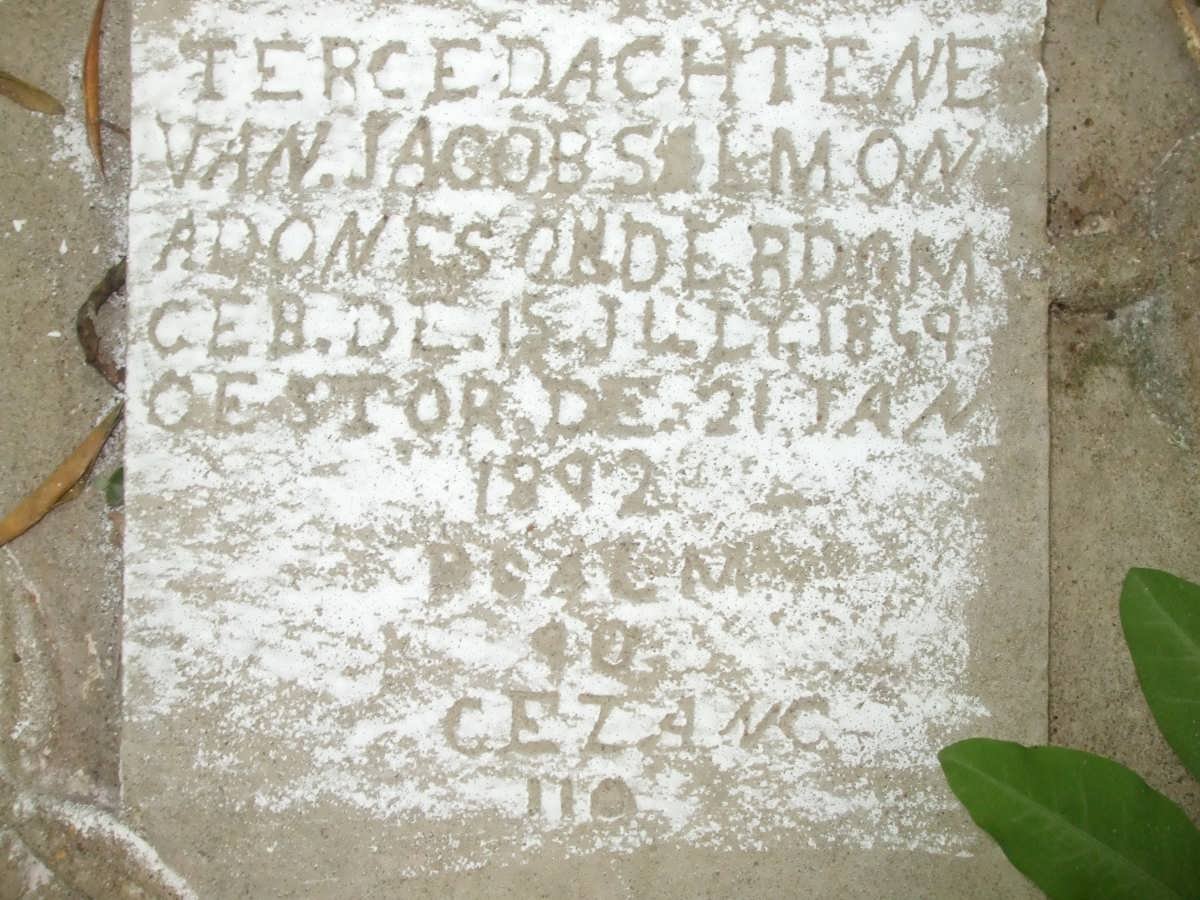 TERGEDACHTENE
VAN. JACOB SILMON
ADONES ONDERDAM
GEB. DE. 15. JULY. 1859
GESTOR. DE. 21 JAN
1892
PSALM
90
GEZANG
110